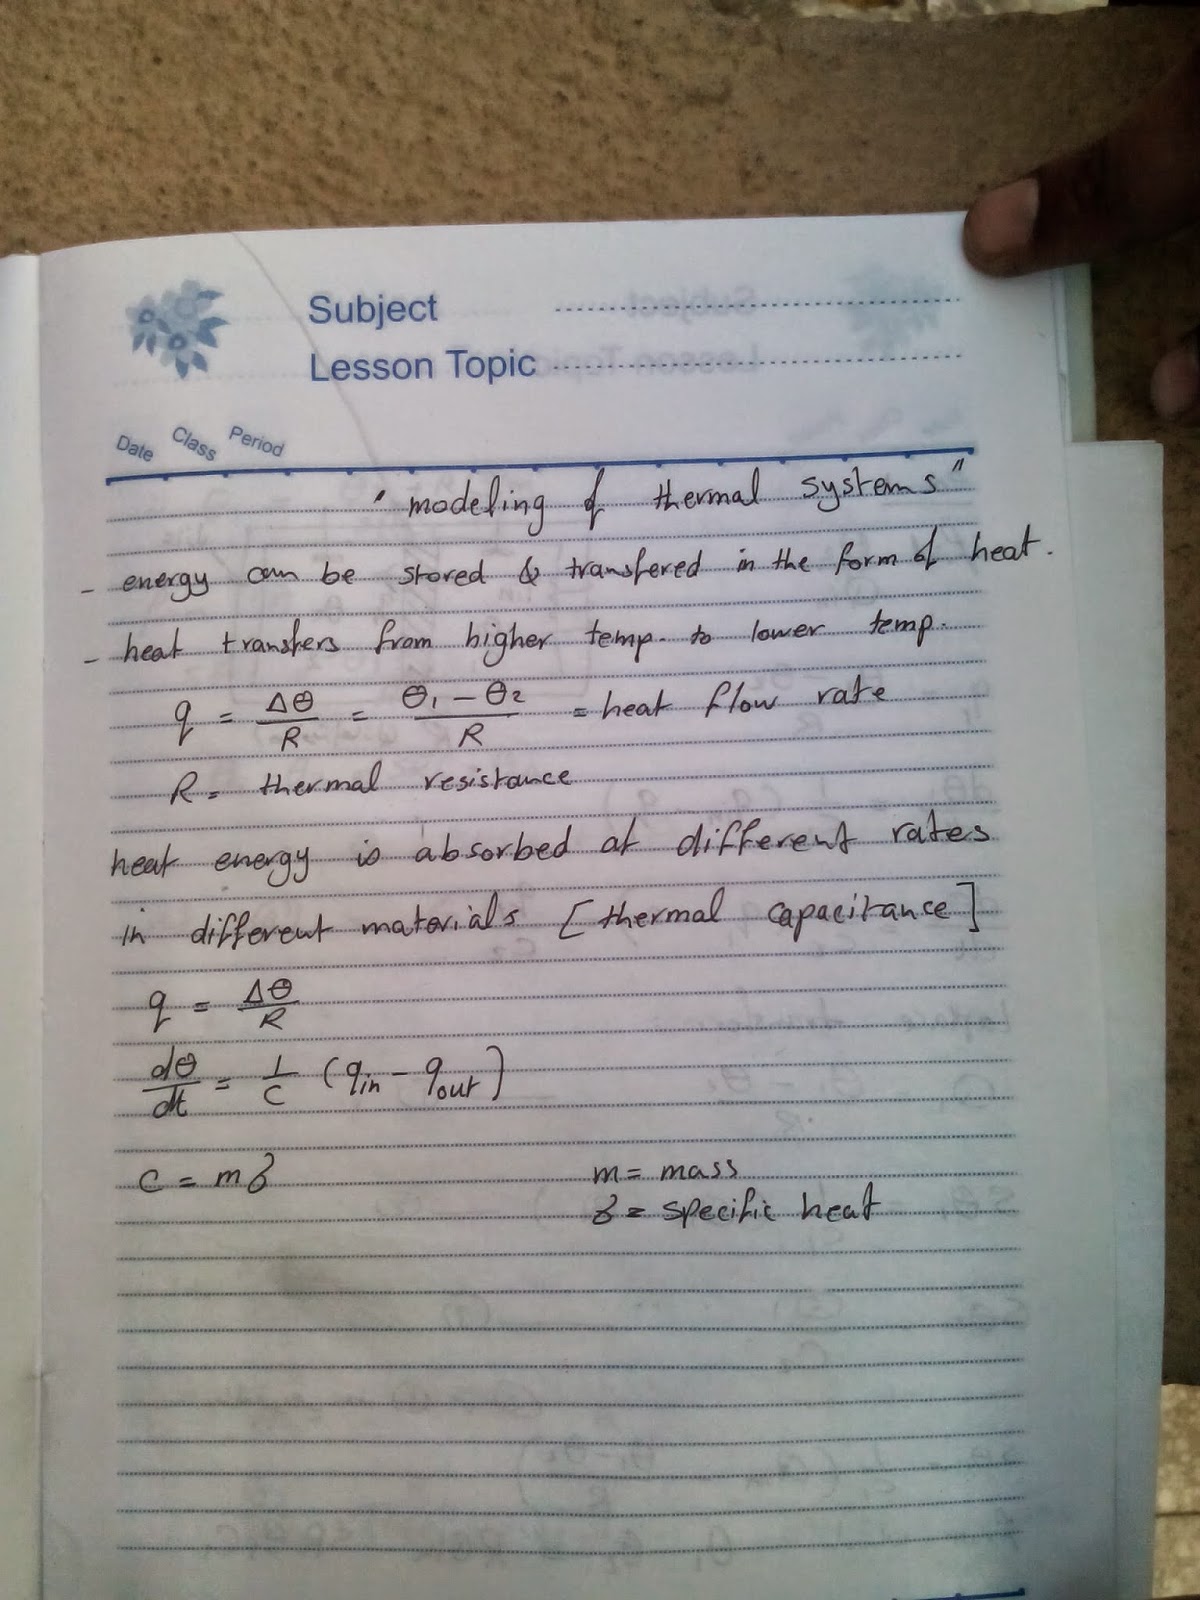 Subject
Lesson Topic
Date Class Period
" modeling of thermal systems "
- energy can be stored & transfered in the form of heat.
- heat transfers from higher temp. to lower temp.
q = Δθ/R = θ₁ - θ₂/R = heat flow rate
R = thermal resistance
heat energy is absorbed at different rates
in different materials [thermal capacitance]
q = Δθ/R
dθ/dt = 1/C (q_in - q_out)
C = m z m = mass
z = specific heat